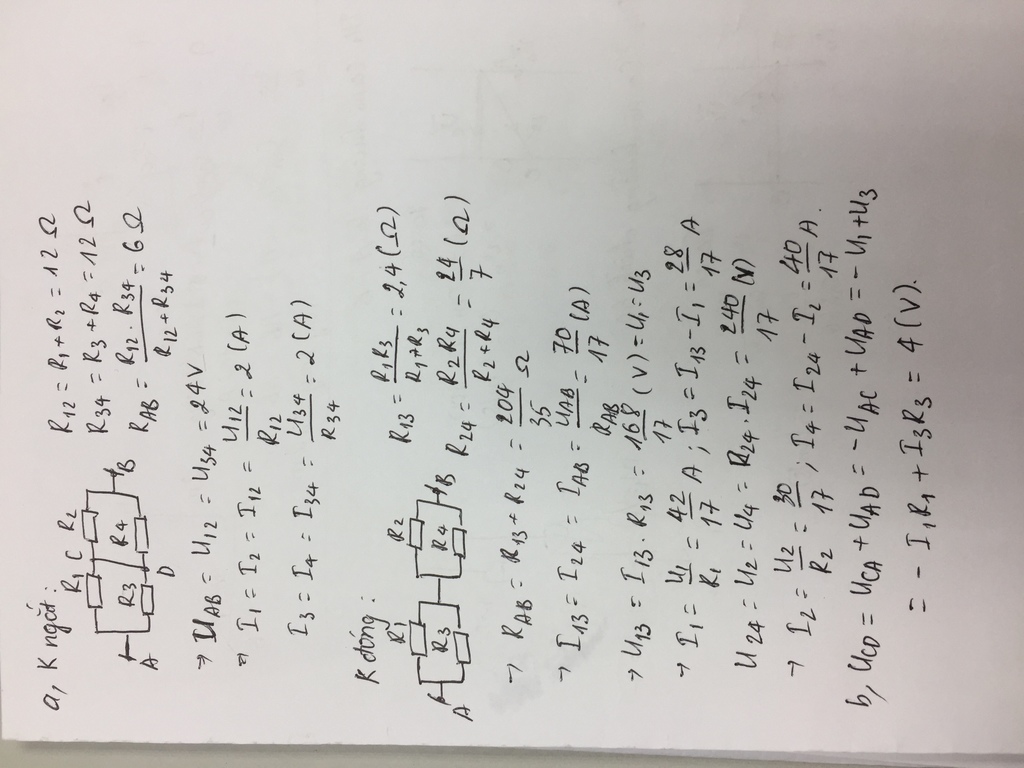 a, K ngắt:
R1 C R2
R3 R4
A B
D
R12 = R1 + R2 = 12 Ω
R34 = R3 + R4 = 12 Ω
RAB = R12 . R34 / R12 + R34 = 6 Ω
→ UAB = U12 = U34 = 24V
→ I1 = I2 = I12 = U12 / R12 = 2 (A)
I3 = I4 = I34 = U34 / R34 = 2 (A)
K đóng:
R1 R2
R3 R4
A B
R13 = R1 R3 / R1 + R3 = 2,4 (Ω)
R24 = R2 R4 / R2 + R4 = 24/7 (Ω)
→ RAB = R13 + R24 = 204/35 Ω
→ I13 = I24 = IAB = UAB / RAB = 70/17 (A)
→ U13 = I13 . R13 = 168/17 (V) = U1 = U3
→ I1 = U1 / R1 = 42/17 A ; I3 = I13 - I1 = 28/17 A
U24 = U2 = U4 = R24 . I24 = 240/17 (V)
→ I2 = U2 / R2 = 30/17 ; I4 = I24 - I2 = 40/17 A.
b, UCD = UCA + UAD = -UAC + UAD = - U1 + U3
= - I1R1 + I3R3 = 4 (V).